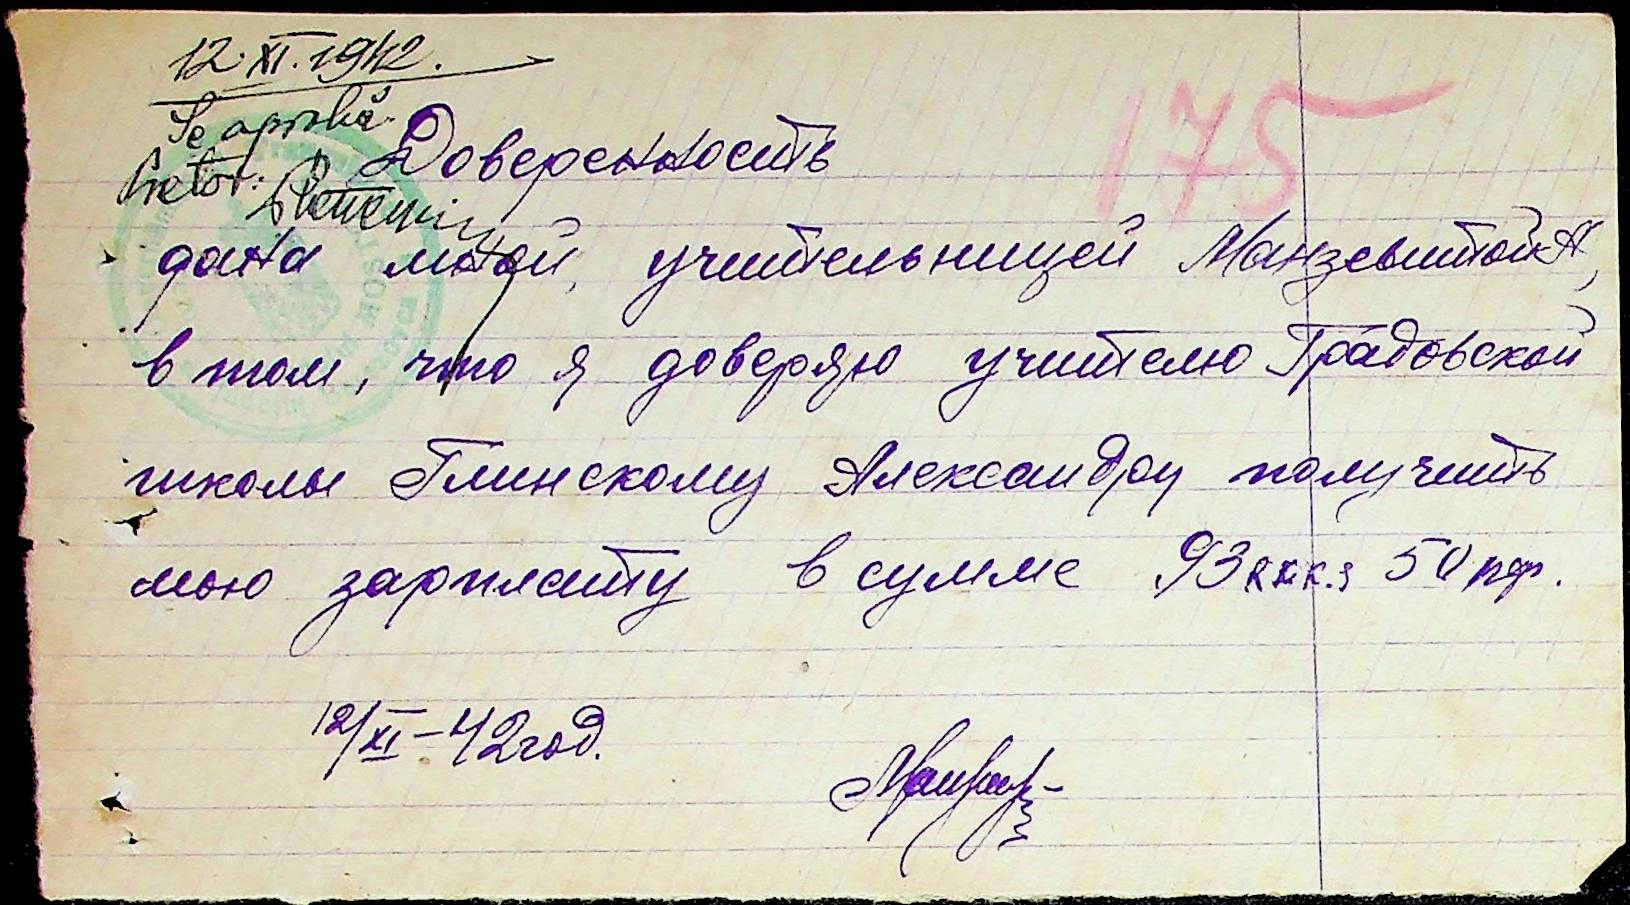 12.XI.1942.
Se aprobă.
Pretor:
175
Доверенность
дана мной, учительницей
в том, что я доверяю учителю Градовской
школы Глинскому Александру получить
мою зарплату в сумме 93 RKK.S 50 пф.
12/XI-42 год.